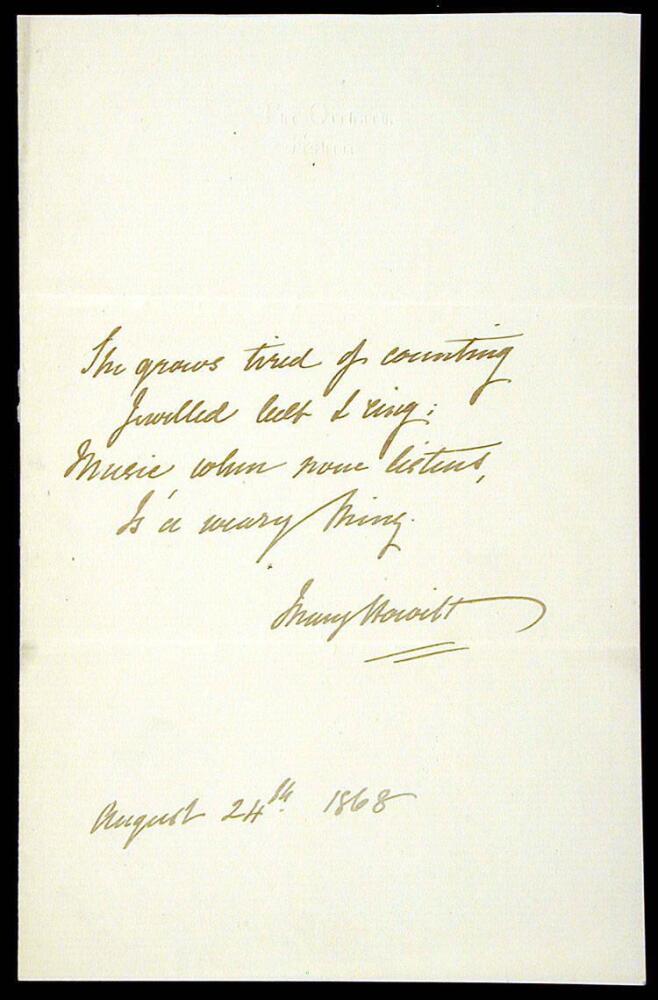 The Orchard
Esher
She grows tired of counting
Jewelled belt & ring;
Music when none listens,
Is a weary thing.
Mary Howitt
August 24th. 1868